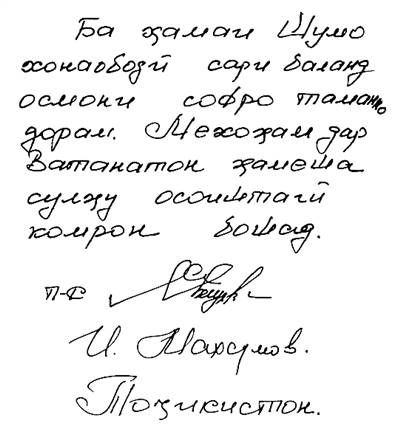 Ба ҳамаи Шумо
хонаободӣ сари баланд
осмони софро таманно
дорам. Мехоҳам дар
Ватанатон ҳамеша
сулҳу осоиштагӣ
комрон бошад.
И. Махсумов.
Тоҷикистон.